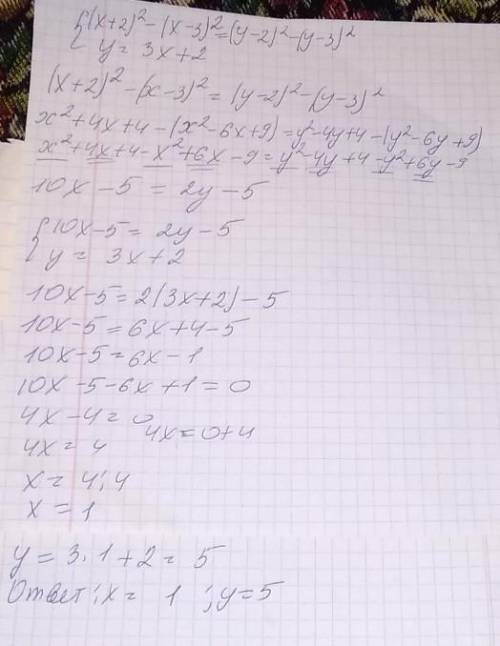 {(x+2)²-(x-3)²=(y-2)²-(y-3)²
y= 3x+2
(x+2)²-(x-3)²=(y-2)²-(y-3)²
x²+4x+4-(x²-6x+9)=y²-4y+4-(y²-6y+9)
x²+4x+4-x²+6x-9=y²-4y+4-y²+6y-9
10x-5=2y-5
{10x-5=2y-5
y= 3x+2
10x-5=2(3x+2)-5
10x-5=6x+4-5
10x-5=6x-1
10x-5-6x+1=0
4x-4=0
4x=0+4
4x=4
x=4:4
x=1
y=3·1+2=5
Ответ: x= 1 ; y=5